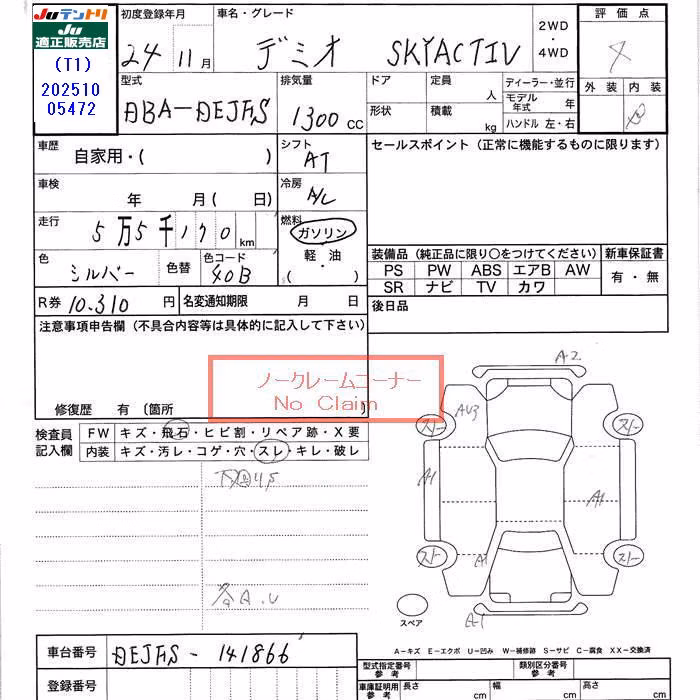 Juテントリ
Ju
適正販売店
(T1)
202510
05472
初度登録年月
24 11月
車名・グレード
デミオ SKYACTIV
2WD
・
4WD
評価点
外装 内装
型式
DBA-DEJFS
排気量
1300 CC
ドア
形状
定員
人
積載
kg
ディーラー・並行
モデル年式 年
ハンドル 左・右
車歴
自家用・( )
シフト
AT
セールスポイント(正常に機能するものに限ります)
車検
年 月( 日)
冷房
A/C
走行
5万5千170 km
燃料
ガソリン
軽油
( )
色
シルバー
色替
色コード
40B
装備品(純正品に限り○をつけてください) 新車保証書
PS PW ABS エアB AW
SR ナビ TV カワ
有・無
R券 10,310 円
名変通知期限 月 日
後日品
注意事項申告欄(不具合内容等は具体的に記入して下さい)
ノークレームコーナー
No Claim
修復歴 有〔箇所 〕
検査員
記入欄
FW キズ・飛石・ヒビ割・リペア跡・X要
内装 キズ・汚レ・コゲ・穴・スレ・キレ・破レ
A2
AU3
スリー スリー
A1 A1
スリー スリー
A1
A-1
各A.U
スペア
A-キズ E-エクボ U-凹み W-補修跡 S-サビ C-腐食 XX-交換済
車台番号 DEJFS - 141866
登録番号
型式指定番号
参考
類別区分番号
参考
車庫証明用
参考
長さ cm
幅 cm
高さ cm